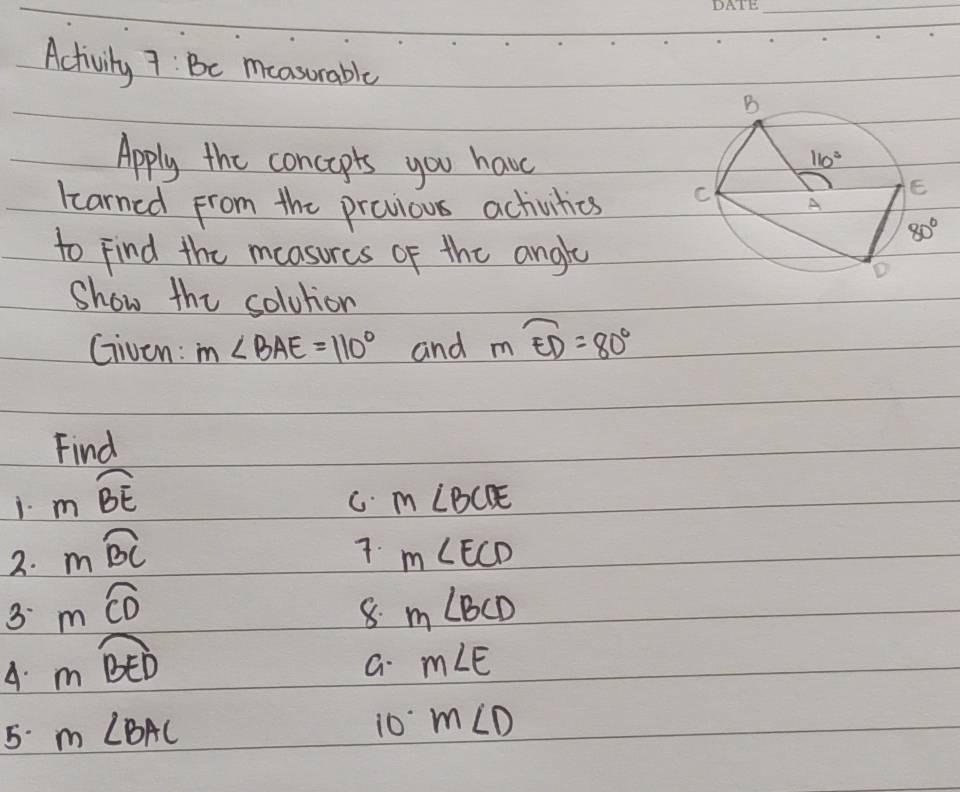 DATE
Activity 7: Be measurable
Apply the concepts you have
learned from the previous activities
to find the measures of the angle
Show the solution
Given: m ∠BAE = 110° and m ED = 80°
B
110°
C
A
E
80°
D
Find
1. m BE
2. m BC
3. m CD
4. m BED
5. m ∠BAC
6. m ∠BCE
7. m ∠ECD
8. m ∠BCD
9. m∠E
10. m∠D